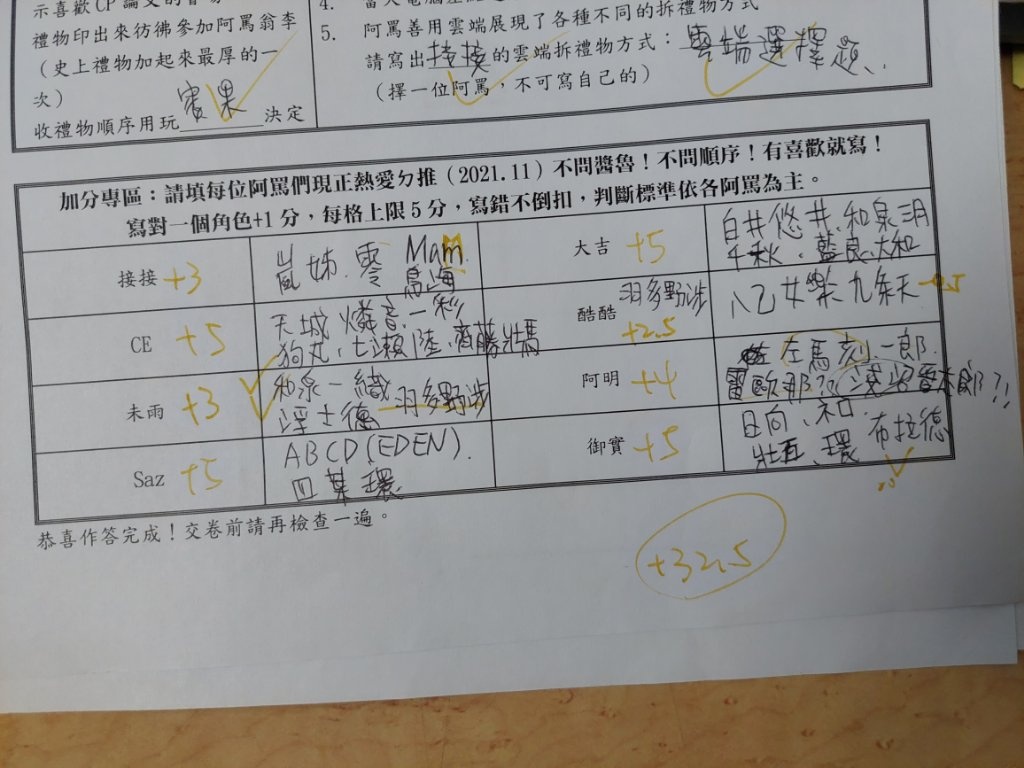 示喜歡CP論文的
禮物印出來彷彿參加阿罵翁李
（史上禮物加起來最厚的一
次）
收禮物順序用玩賓果決定
4.
5. 阿罵善用雲端展現了各種不同的拆禮物方式
請寫出接接的雲端拆禮物方式：雲端選擇題、
（擇一位阿罵，不可寫自己的）
加分專區：請填每位阿罵們現正熱愛ㄉ推（2021.11）不問醬魯！不問順序！有喜歡就寫！
寫對一個角色+1分，每格上限5分，寫錯不倒扣，判斷標準依各阿罵為主。
接接 +3
嵐姊、零 Mam
鳥海
大吉 +5
白井悠井、和泉三月
千秋、藍良、大和
CE +5
天城燐音、一彩
狗丸、七瀨陸、齊藤壯馬
酷酷 +2.5
羽多野涉
八乙女樂、九条天
未雨 +3
和泉一織
淫士德 羽多野涉
阿明 +4
左馬刻、一郎
雷歐那??
Saz +5
ABCD(EDEN).
四葉環
御實 +5
日向、和
壯五、環 布拉德
恭喜作答完成！交卷前請再檢查一遍。
+32.5